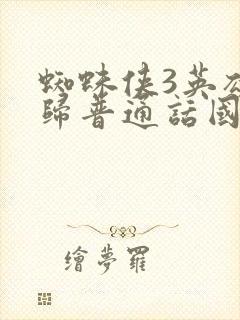 蜘蛛侠3英
歸普通話國
繪夢羅